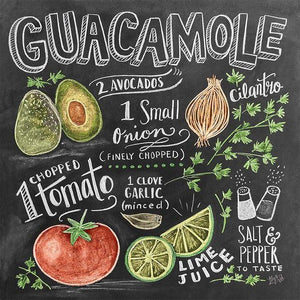 GUACAMOLE
2 AVOCADOS
cilantro
1 Small
Onion
(FINELY CHOPPED)
CHOPPED
1 Tomato
1 CLOVE
GARLIC
(minced)
LIME
JUICE
SALT &
PEPPER
TO TASTE